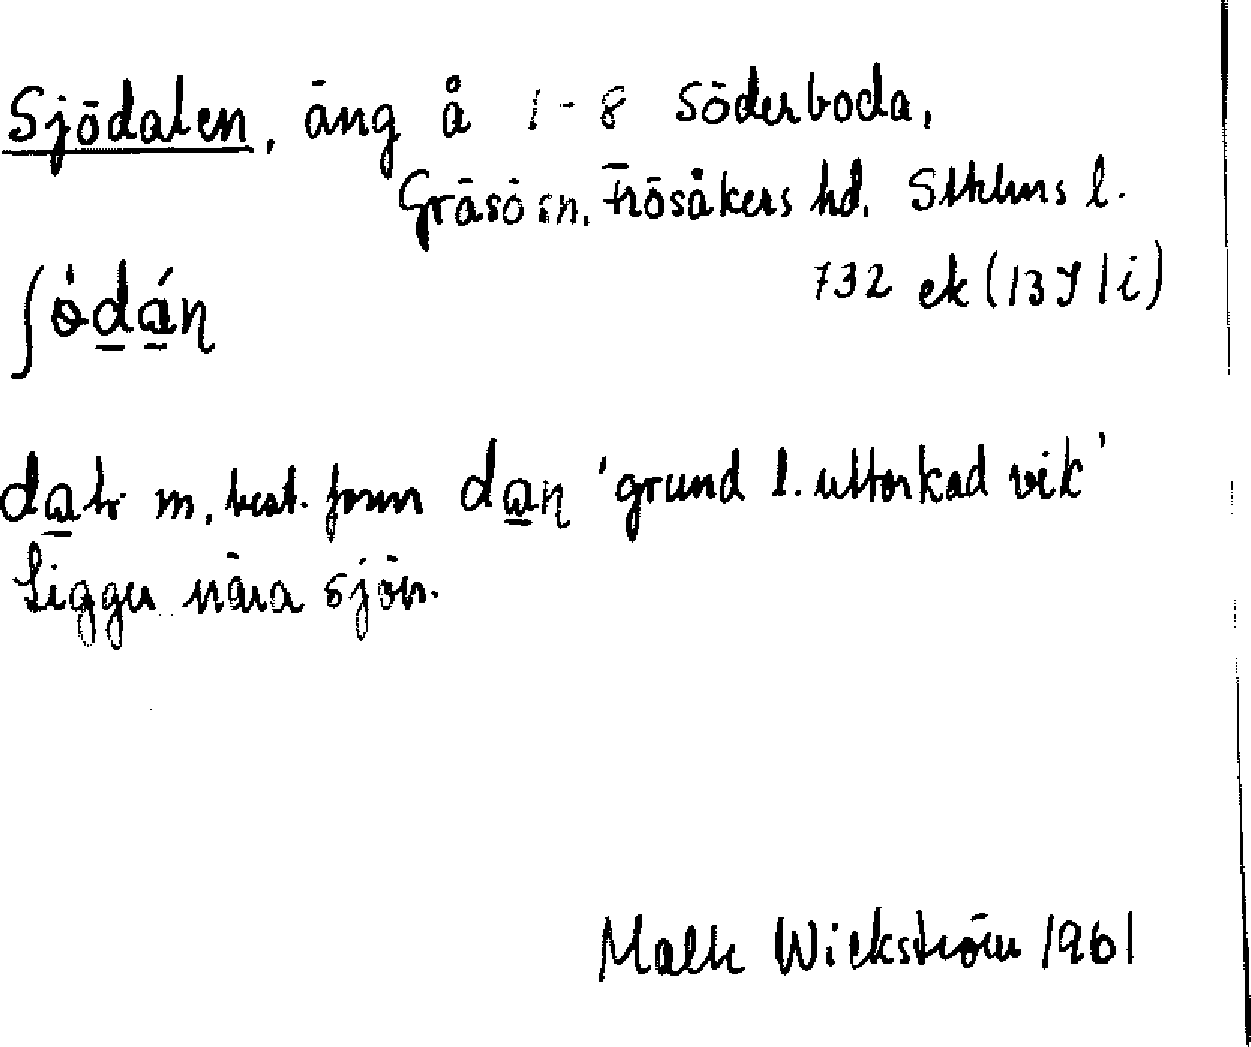 Sjödalen, äng å 1-8 Söderboda,
Gräsö sn. Frösåkers hd. Sthlms l.
732 ek (13J1i)
ʃödán
m. best. form dan 'grund l. uttorkad vik'
Ligger nära sjön.
Wickström 1961